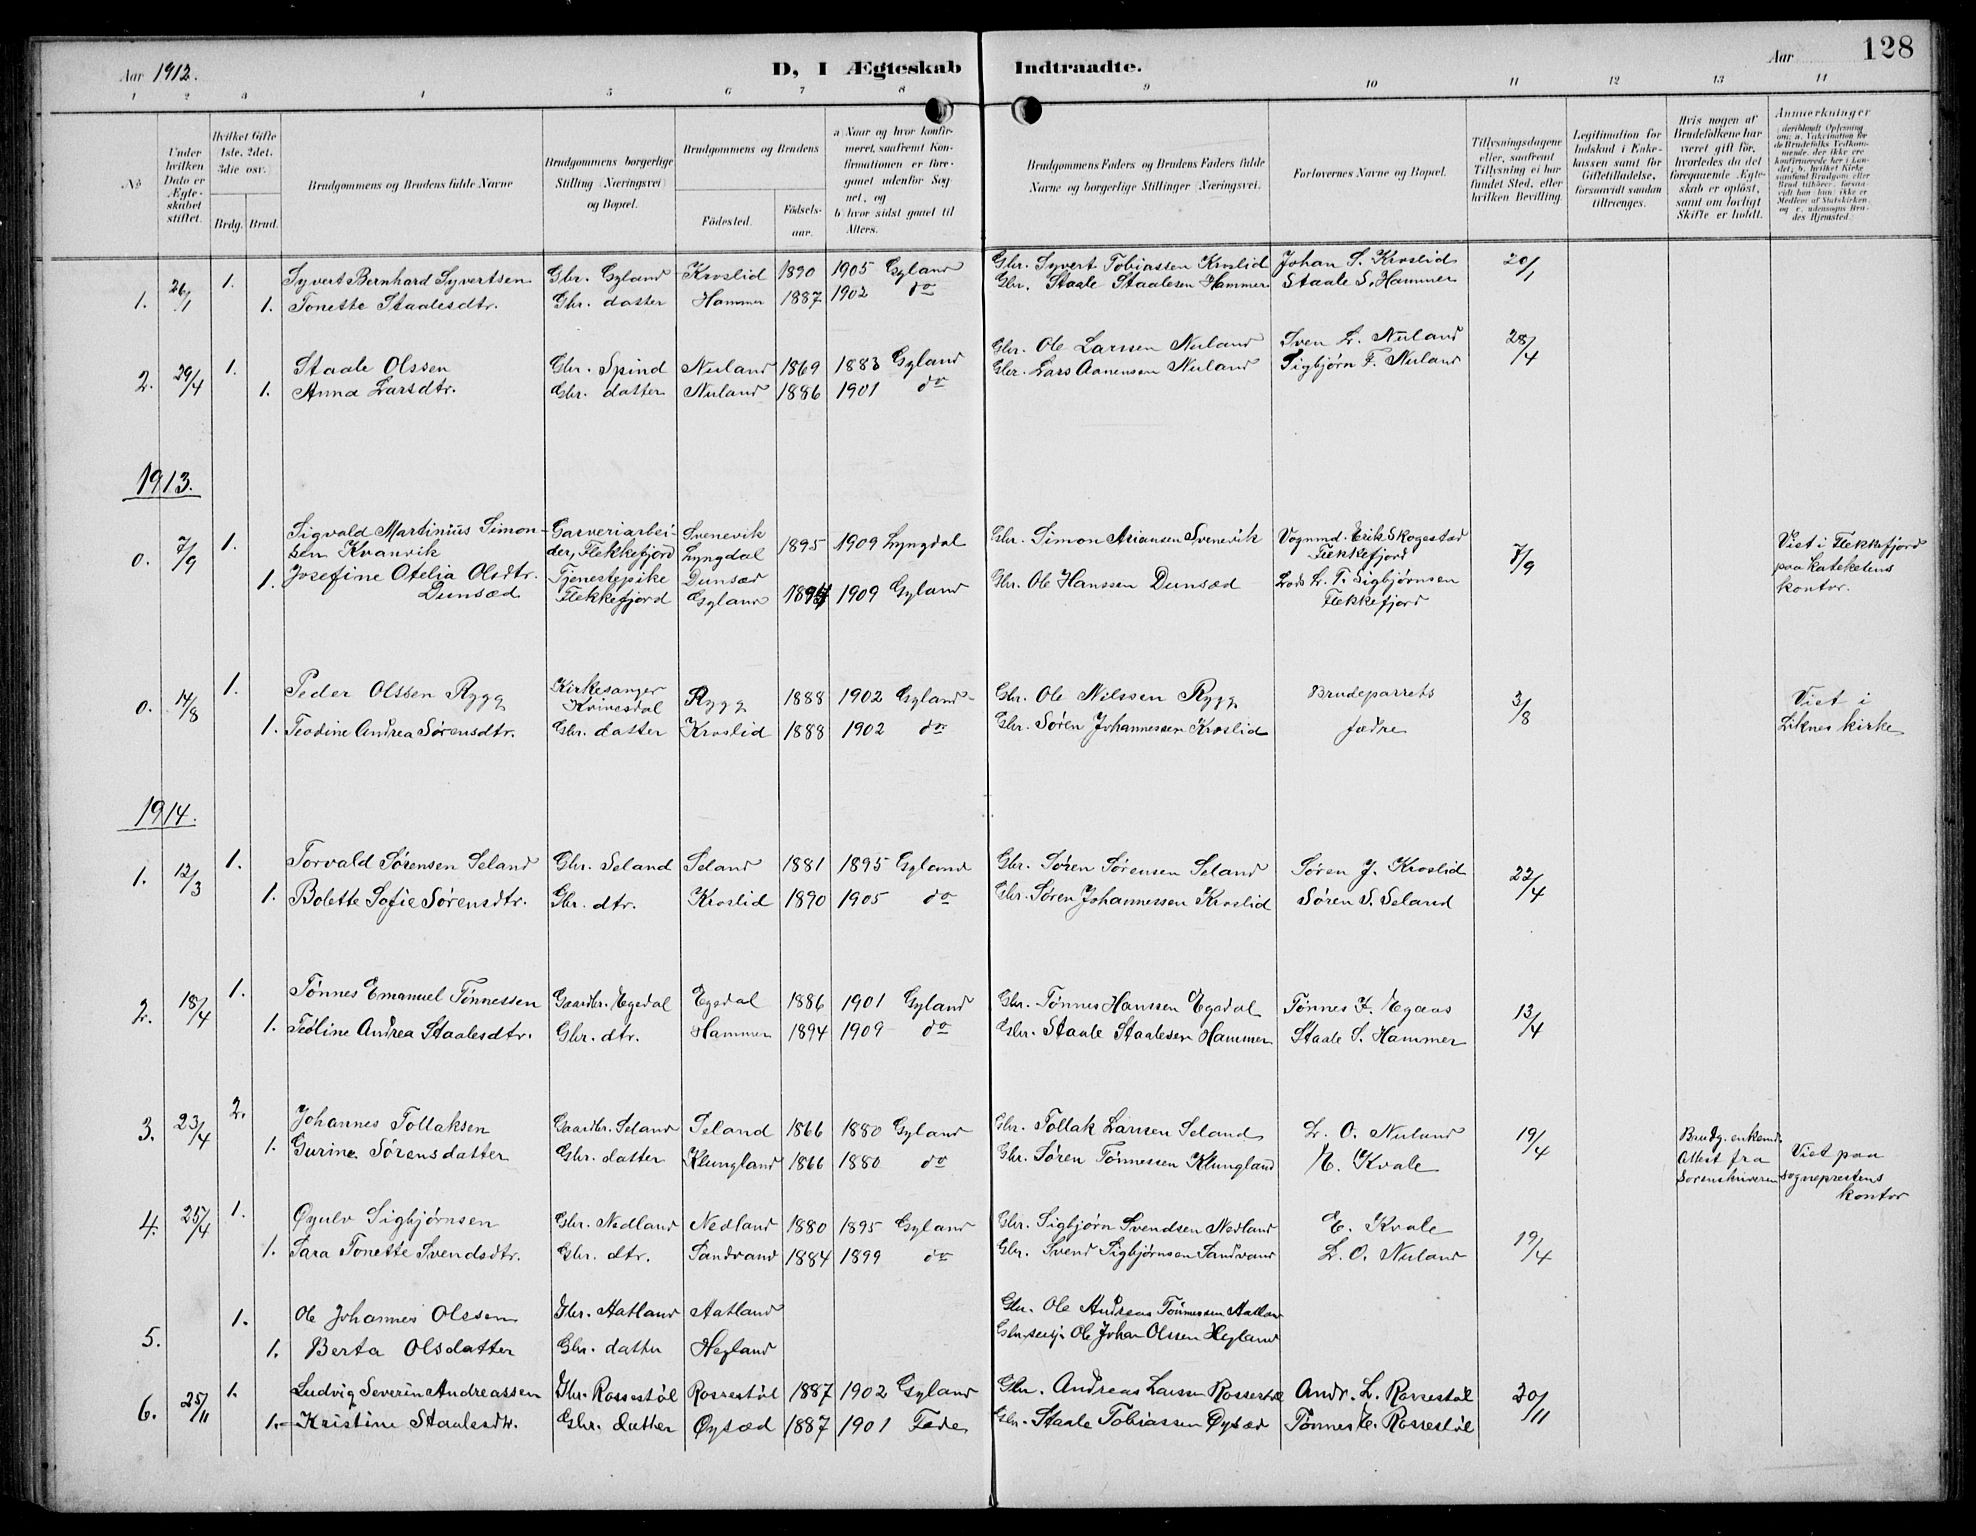 Aar 1912. D, I Ægteskab Indtraadte. Aar 128
1 2 3 4 5 6 7 8 9 10 11 12 13 14
No
Under hvilken Dato er Ægteskabet stiftet.
Hvilket Gifte 1ste, 2det, 3die osv.
Brdg. Brud.
Brudgommens og Brudens fulde Navne
Brudgommens borgerlige Stilling (Næringsvei) og Bopæl.
Brudgommens og Brudens
Fødested. Fødselsaar.
a) Naar og hvor konfirmeret, saafremt Konfirmationen er foregaaet udenfor Sognet, og
b) hvor sidst gaaet til Alters.
Brudgommens Faders og Brudens Faders fulde Navne og borgerlige Stillinger (Næringsvei).
Forlovernes Navne og Bopæl.
Tillysningsdagene eller, saafremt Tillysning ei har fundet Sted, efter hvilken Bevilling.
Legitimation for Indskud i Enkekassen samt for Giftetilladelse, forsaavidt saadan tiltrænges.
Hvis nogen af Brudefolkene har været gift før, hvorledes da det foregaaende Ægteskab er opløst, samt om lovligt Skifte er holdt.
Anmerkninger
1. 26/1 1. Syvert Bernhard Syvertsen Gbr. Gyland Kroslid 1890 1905 Gyland Gbr. Syvert Tobiassen Kroslid Johan S. Kroslid 20/1
1. Tonette Staalesdtr. Gbr. datter Hammer 1887 1902 do Gbr. Staale Staalesen Hammer Staale S. Hammer
2. 29/4 1. Staale Olssen Gbr. Spind Nuland 1869 1883 Gyland Gbr. Ole Larssen Nuland Sven L. Nuland 28/4
1. Anna Larsdtr. Gbr. datter Nuland 1886 1901 do Gbr. Lars Aanensen Nuland Sigbjørn F. Nuland
1913.
0. 7/9 1. Sigvald Martinius Simon- Garveriarbei- Svenevik 1895 1909 Lyngdal Gbr. Simon Ariansen Svenevik Vognmd. Erik Skogestad 7/9 Viet i Flekkefjord
sen Kvanvik der, Flekkefjord Lyngdal Flekkefjord paa kateketens
1. Josefine Otelia Olsdtr. Tjenestepike Dunsæd 1894 1909 Gyland Gbr. Ole Hanssen Dunsæd Lods L. T. Sigbjørnsen kontor.
Dunsæd Flekkefjord Gyland Flekkefjord
0. 14/8 1. Peder Olssen Rygg Kirkesanger Kvinesdal Rygg 1888 1902 Gyland Gbr. Ole Nilssen Rygg Brudeparrets 3/8 Viet i
1. Teodine Andrea Sørensdtr. Gbr. datter Kroslid 1888 1902 do Gbr. Søren Johannessen Kroslid fædre Liknes kirke
1914.
1. 12/3 1. Torvald Sørensen Seland Gbr. Seland Seland 1881 1895 Gyland Gbr. Søren Sørensen Seland Søren J. Kroslid 22/4
1. Bolette Sofie Sørensdtr. Gbr. dtr. Kroslid 1890 1905 do Gbr. Søren Johannessen Kroslid Søren S. Seland
2. 18/4 1. Tønnes Emanuel Tønnessen Gaardbr. Egedal Egedal 1886 1901 Gyland Gbr. Tønnes Hanssen Egedal Tønnes F. Egeaas 13/4
1. Teoline Andrea Staalesdtr. Gbr. dtr. Hammer 1894 1909 do Gbr. Staale Staalesen Hammer Staale S. Hammer
3. 23/4 2. Johannes Tollaksen Gaardbr. Seland Seland 1866 1880 Gyland Gbr. Tollak Larssen Seland L. O. Nuland 19/4 Brudg. enkemd.
1. Gurine Sørensdatter Gbr. datter Klungland 1866 1880 do Gbr. Søren Tønnessen Klungland E. Kvale Attest fra Viet paa
Sorenskriveren sogneprestens
kontor
4. 25/4 1. Øyulv Sigbjørnsen Gbr. Nedland Nedland 1880 1895 Gyland Gbr. Sigbjørn Svendsen Nedland E. Kvale 19/4
1. Sara Tonette Svendsdtr. Gbr. dtr. Sandvand 1884 1899 do Gbr. Svend Sigbjørnsen Sandvand L. O. Nuland
5. 1. Ole Johannes Olssen Gbr. Aatland Aatland Gbr. Ole Andreas Tønnessen Aatland
1. Berta Olsdatter Gbr. datter Hegland Ole Johan Olssen Hegland
6. 25/11 1. Ludvig Severin Andreassen Gbr. Rossestøl Rossestøl 1887 1902 Gyland Gbr. Andreas Larssen Rossestøl Andr. L. Rossestøl 20/11
1. Kristine Staalesdtr. Gbr. datter Øysæd 1887 1901 Fede Gbr. Staale Tobiassen Øysæd Tønnes E. Rossestøl